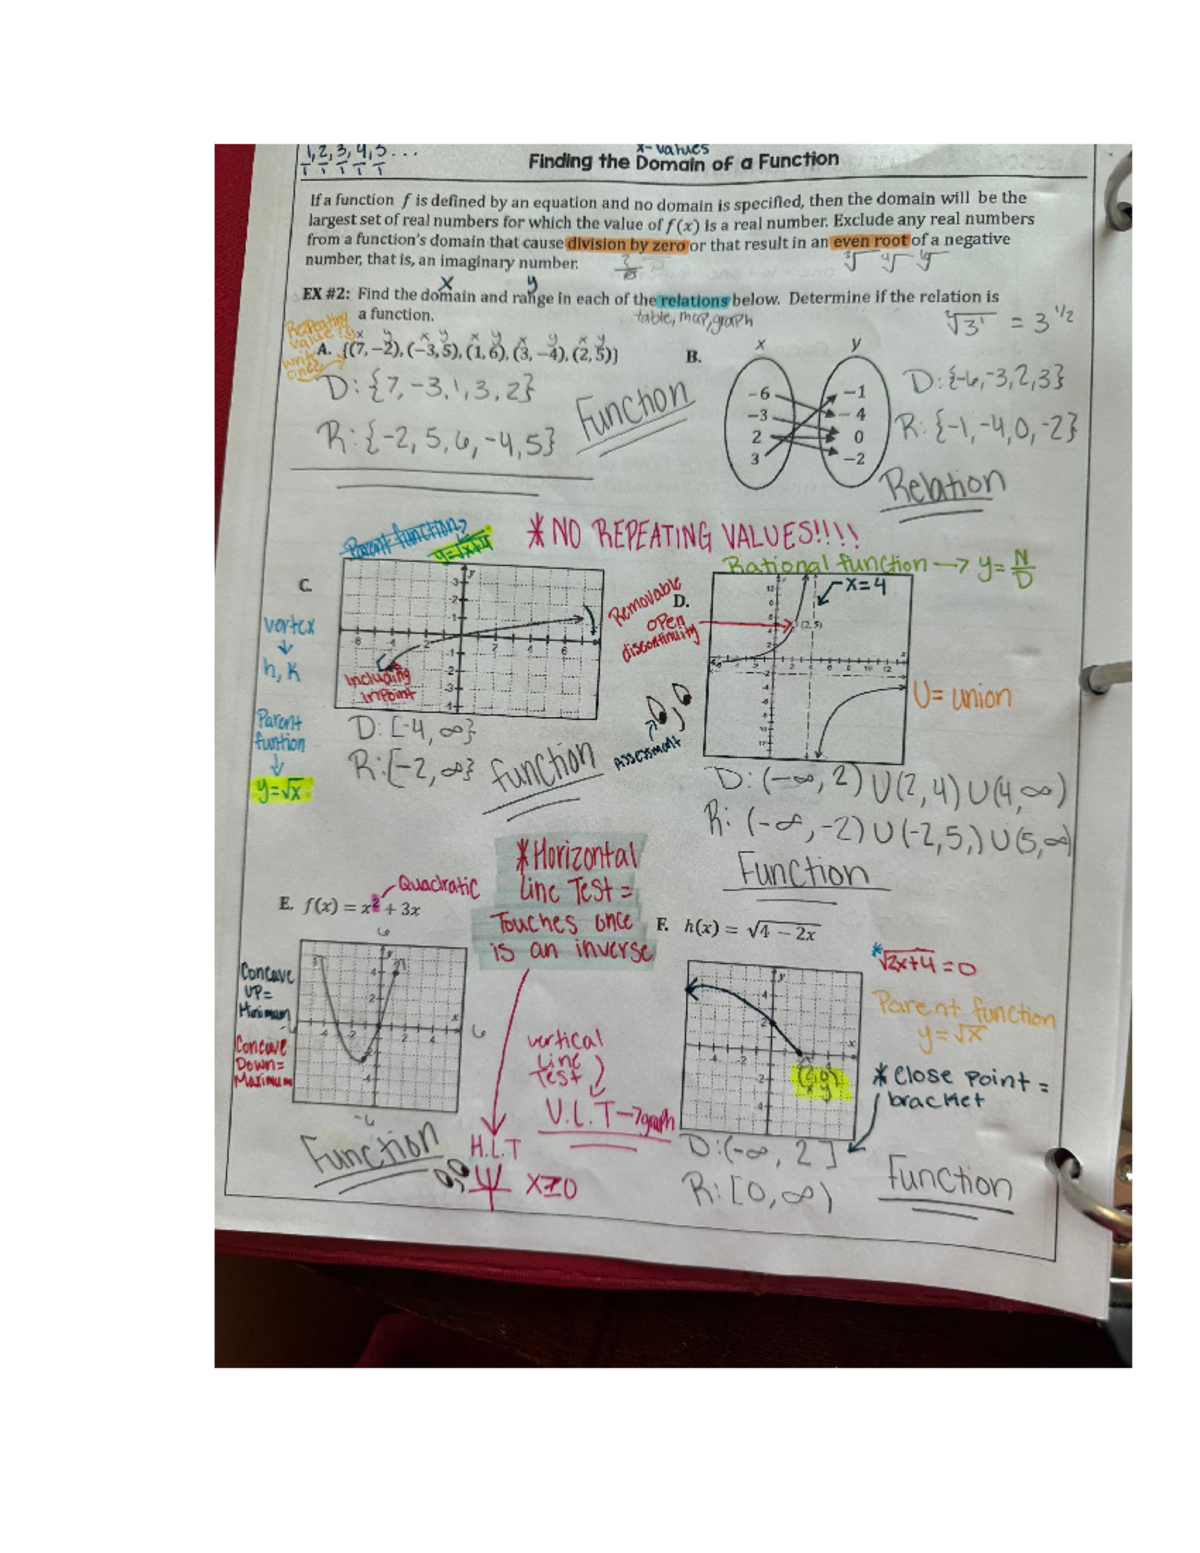 1, 2, 3, 4, 5 ...
1 1 1 1 1
x-values
Finding the Domain of a Function
If a function f is defined by an equation and no domain is specified, then the domain will be the
largest set of real numbers for which the value of f(x) is a real number. Exclude any real numbers
from a function's domain that cause division by zero or that result in an even root of a negative
number, that is, an imaginary number.
x y
EX #2: Find the domain and range in each of the relations below. Determine if the relation is
a function.
table, map, graph
√3¹ = 3^1/2
Repeating
value?
write
once
x y x y x y x y x y
A. {(7, −2), (−3, 5), (1, 6), (3, −4), (2, 5)}
D: {7, -3, 1, 3, 2}
R: {-2, 5, 6, -4, 5}
Function
B.
x y
-6 -1
-3 -4
2 0
3 -2
D: {-6,-3,2,3}
R: {-1,-4,0,-2}
Relation
* NO REPEATING VALUES!!!!
Parent function→
y=√x+4
C.
vortex
h, k
Parent
funtion
y=√x
including
inpoint
D: [-4, ∞}
R: [-2, ∞}
function
Rational function → y= N/D
D.
Removable
open
discontinuity
x=4
(2,5)
U= union
Assessment
D: (-∞, 2) U (2, 4) U (4, ∞)
R: (-∞, -2) U (-2, 5,) U (5, ∞)
Function
*Horizontal
Line Test =
Touches once
is an inverse
Quadratic
E. f(x) = x² + 3x
6
6
-6
Concave
UP=
Minimum
Concave
Down=
Maximum
Function
vertical
Line
Test
V.L.T→graph
H.L.T
x≥0
F. h(x) = √4 − 2x
*√2x+4 = 0
Parent function
y=√x
(2,0)
x y
* Close point =
bracket
D: (-∞, 2]
R: [0, ∞)
Function